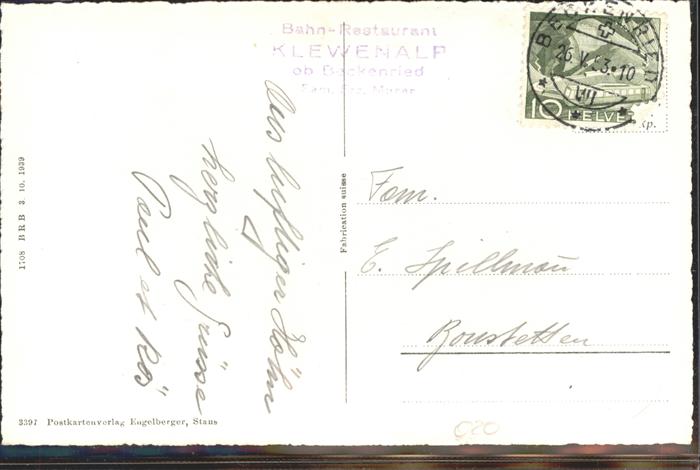 Bahn-Restaurant
KLEWENALP
ob Beckenried
Fam.
BECKENRIED
26.V.53-10
VII
10 HELVE
xp.
Aus luftiger Höhe
herzliche Grüsse
Paul et Rös
Fabrication suisse
Fam.
E. Spillmann
Bonstetten
1708 BRB 3. 10. 1939
3397 Postkartenverlag Engelberger, Stans
020